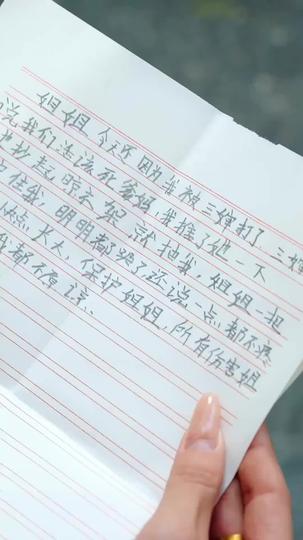 姐姐，今天还因为我被三婶打了，三婶
说我们活该死爹妈，我推了他一下
抄起晾衣架就抽我，姐姐一把
住我，明明都哭了还说一点都不疼
快点长大，保护姐姐，所有伤害姐
我都不原谅、